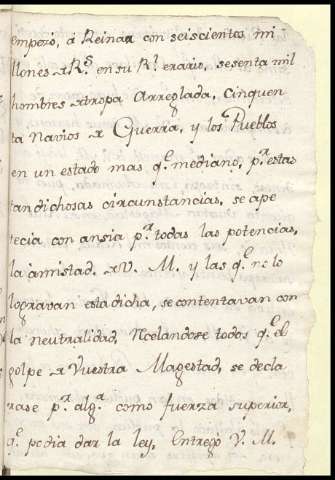 empezó, á Reinar con seiscientos mi
llones de R.s en su R.l erario, sesenta mil
hombres de tropa Arreglada, cinquen
ta Navios de Guerra, y los Pueblos
en un estado mas q.e mediano, p.r estas
tan dichosas circunstancias, se ape
tecia con ansia p.r todas las potencias,
la amistad de V. M. y las q.e no lo
logravan esta dicha, se contentavan con
la neutralidad, Recelandose todos q.e el
golpe de Vuestra Magestad, se decla
rase p.r alg.a como fuerza superior,
q.e podia dar la ley. Entregó V. M.